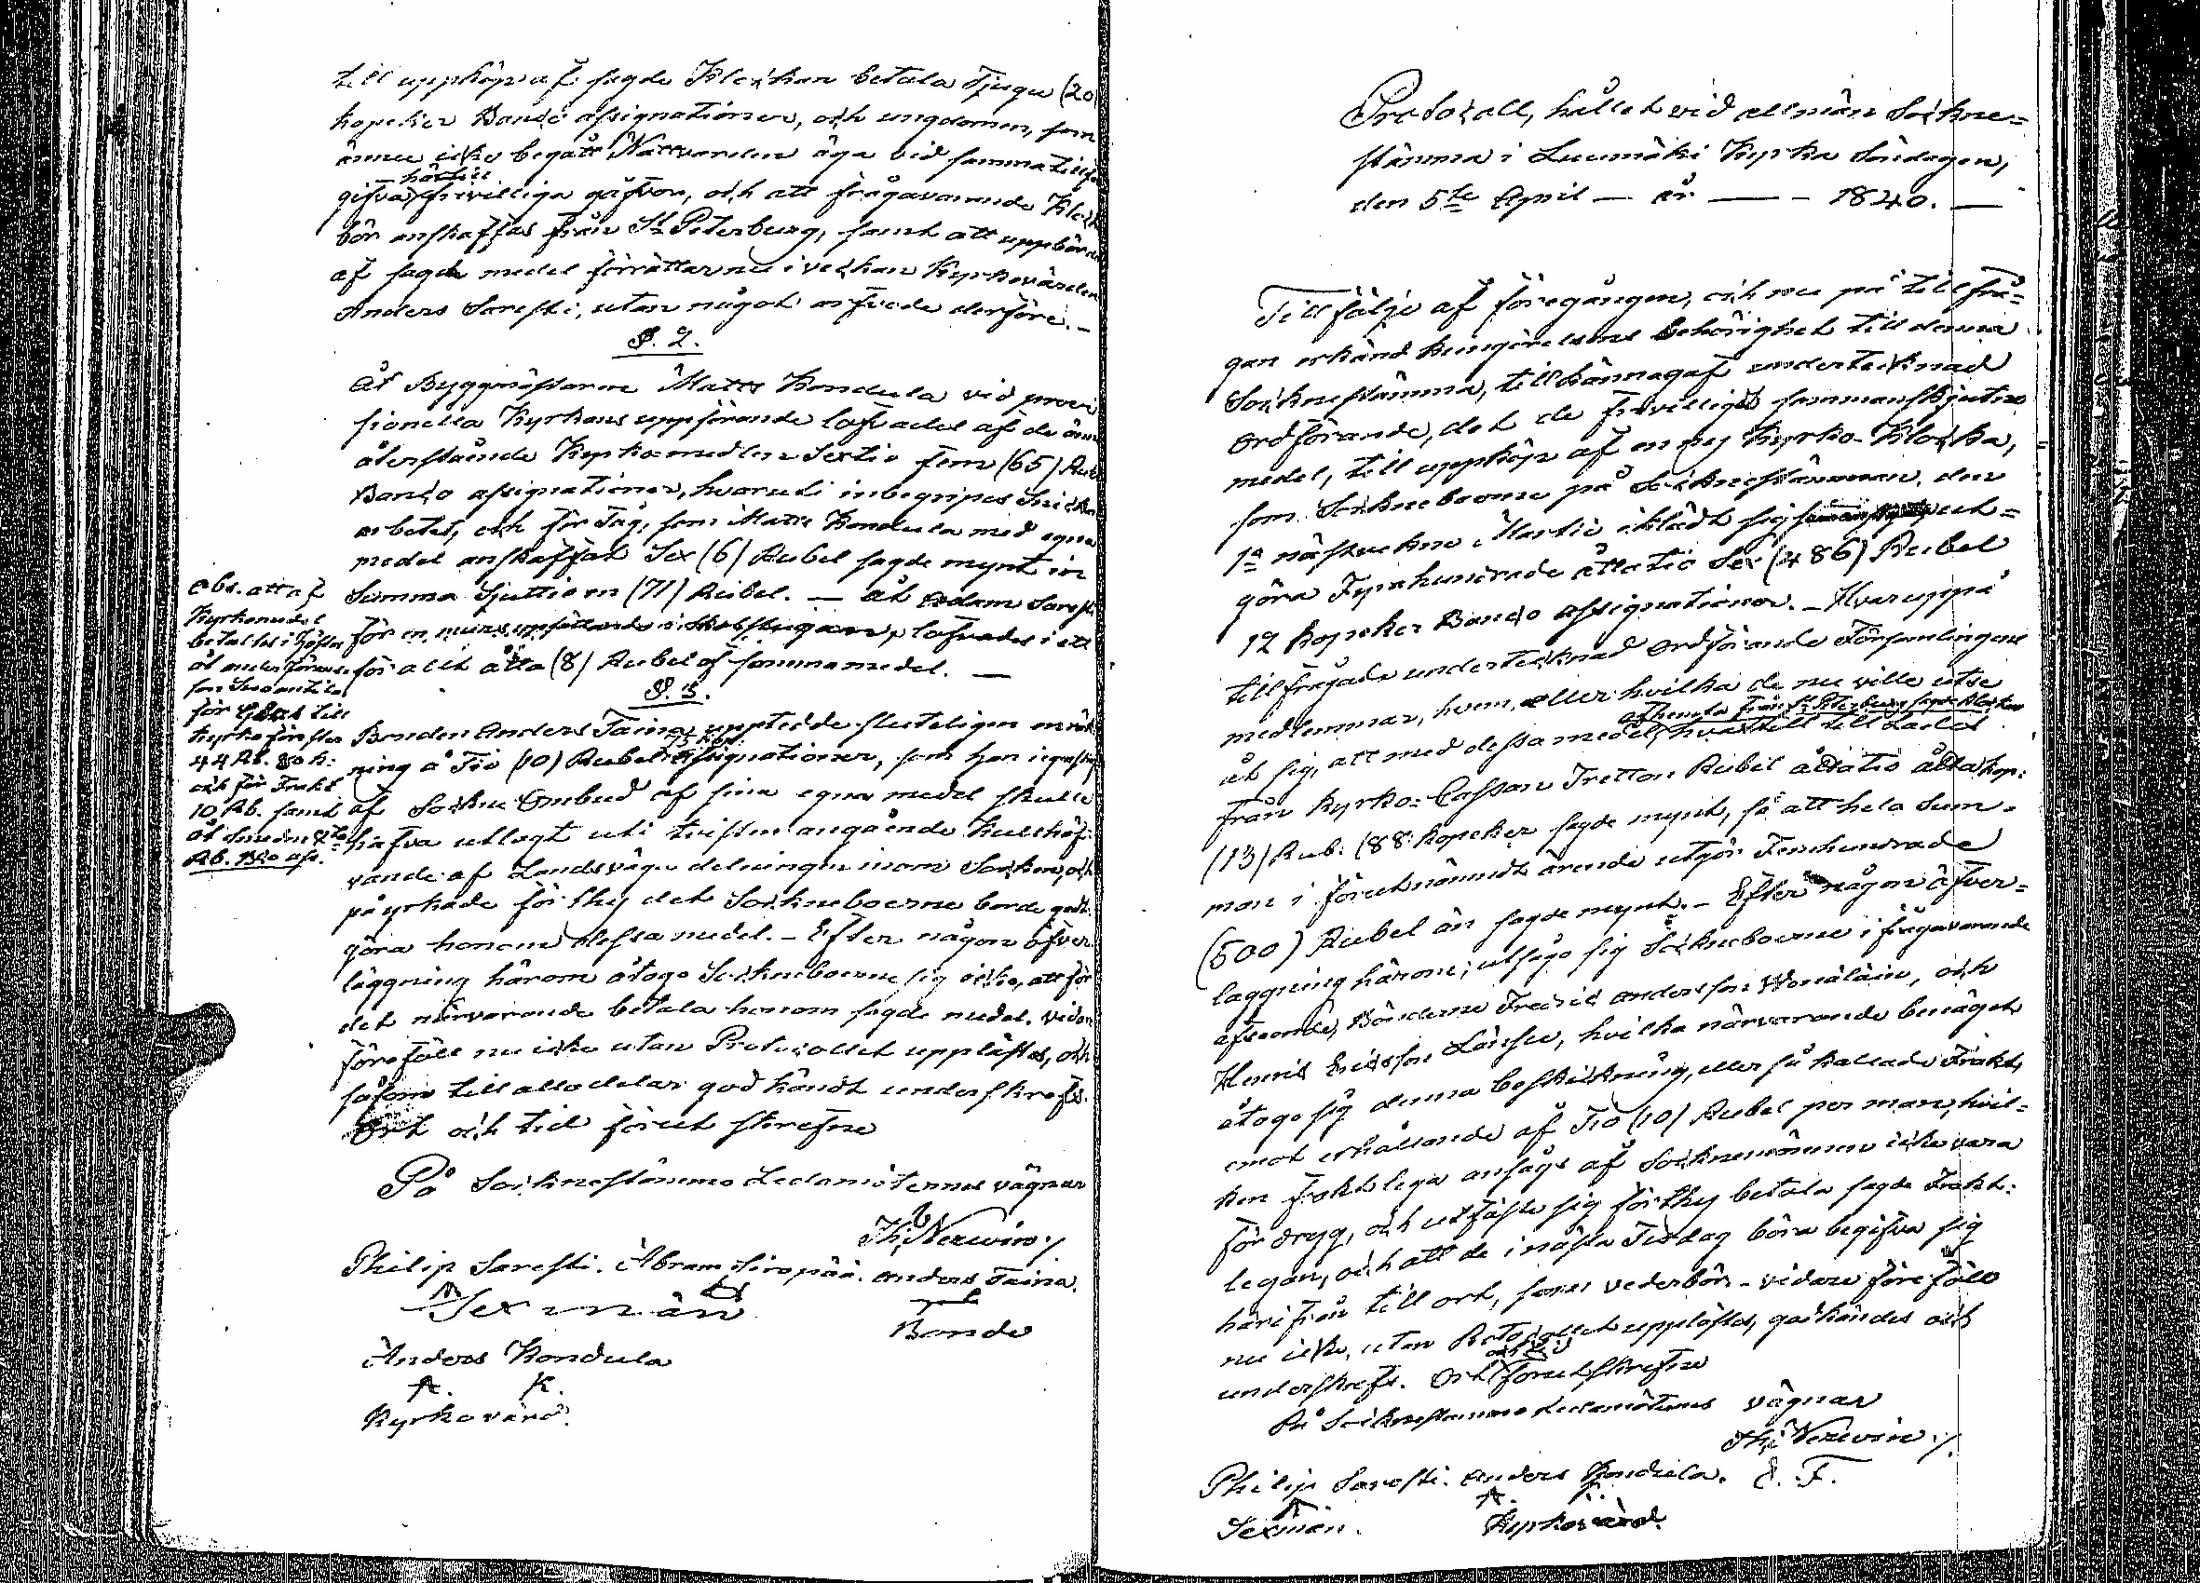 till uppköp af sagde Klockan betala Tjugu (20)
kopeker Banco assignationer, och ungdomen, som
ännu icke begått Nattvarden äga vid samma tillf
härtill
gifva frivilliga gåfvor, och att frågavarande Klock
bör anskaffas från St Peterburg, samt att uppbörden
af sagde medel förrättar nu i veckan Kyrkovärden
Anders Saresti, utan något arfvode derföre. –
§. 2.
Åt Byggmästaren Matts Kondula vid provi
sionella Kyrkans uppförande lofvades af de ännu
återstående Kyrkomedlen Sextio fem (65) Rub
Banco assignationer, hvaruti inbegripes Snickar
arbetet, och för Tåg, som Matts Kondula med egna
medel anskaffat Sex (6) Rubel sagde mynt in
Summa Sjuttio en (71) Rubel. — åt Adam Saresti
för en murs uppförande i , lofvades i ett
för allt åtta (8) Rubel af samma medel. —
Obs. att af
Kyrkomedel
betaltes i
åt
för Glas till
Kyrkofönster
44 Rb. 80 k:
och för Frakt
10 Rb. samt
åt Smeden 8
Rb. Bco ass.
§. 3.
Bonden Anders Taina uppteedde sluteligen en räk
ning å Tio (10) Rubel assignationer, som han i egenskap
af Sockne Ombud af sina egna medel skulle
hafva utlagt uti tvisten angående
vande af Landsvägs delningen inom Socknen, och
påyrkade för thy det Sockneboerne borde godt-
göra honom dessa medel. – Efter någon öfver
läggning härom åtogo Sockneboerne sig icke, att för
det närvarande betala honom sagde medel. vidare
föreföll nu icke utan Protocollet upplästes, och
såsom till alla delar godkändt underskrefs.
Ort och tid förut skrefne
På Sockne stämmo Ledamöternes vägnar
Th: Nerwin ./.
Philip Saresti. Abram Siropää. Anders Taina.
Sexmän
Bonde
Anders Kondula
A. K.
Kyrkovärd.
Protocoll, hållet vid allmän Sockne-
stämma i Luumäki Kyrka Söndagen,
den 5te April — år — — 1840. —
Till följe af föregången, och nu på tillfrå-
gan erkänd kungörelsens behörighet till denna
Socknestämma, tillkännagaf undertecknad
Ordförande, det de frivilligt sammanskjutne
medel, till uppköp af en ny Kyrko-Klocka,
som Sockneboerne på Socknestämman den
1a nästvekne Martii iklädt sig ut-
göra Fyrahundrade åttatio Sex (486) Rubel
12 kopeker Banco assignationer. – Hvaruppå
tillfrågade undertecknad Ordförande Församlingens
medlemmar, hvem eller hvilka de nu ville utse
afhemta från St Peterburg sagde Klockan
åt sig, att med dessa medel,
från Kyrko-Cassan Tretton Rubel åttatio åtta kop:
(13) Rub: (88 kopeker sagde mynt, så att hela Sum-
man i förutnämndt ärende utgör Femhundrade
(500) Rubel än sagde mynt. – Efter någon öfver-
läggning härom, utsågo sig Sockneboerne i frågavarande
afseende, Bönderne Fredric Andersson Monäläin, och
Henric Ericsson Länsu, hvilka närvarande benäget
åtogo sig denna beskickning, eller så kallade Frakt,
emot erhållande af Tio (10) Rubel per man, hvil-
ken frakt lega ansågs af Socknemännen icke vara
för dryg, och utfäste sig för thy betala sagde Frakt-
legan, och att de i nästa Tisdag böra begifva sig
härifrån till ort, som vederbör – vidare föreföll
nu icke, utan Protocollet upplästes, godkändes och
underskrefs. Ort och tid förutskrefne
På Socknestämmo Ledamöternes vägnar
Th: Nerwin ./.
Philip Saresti. Anders Kondula. E. F.
Sexman. Kyrkovärd.